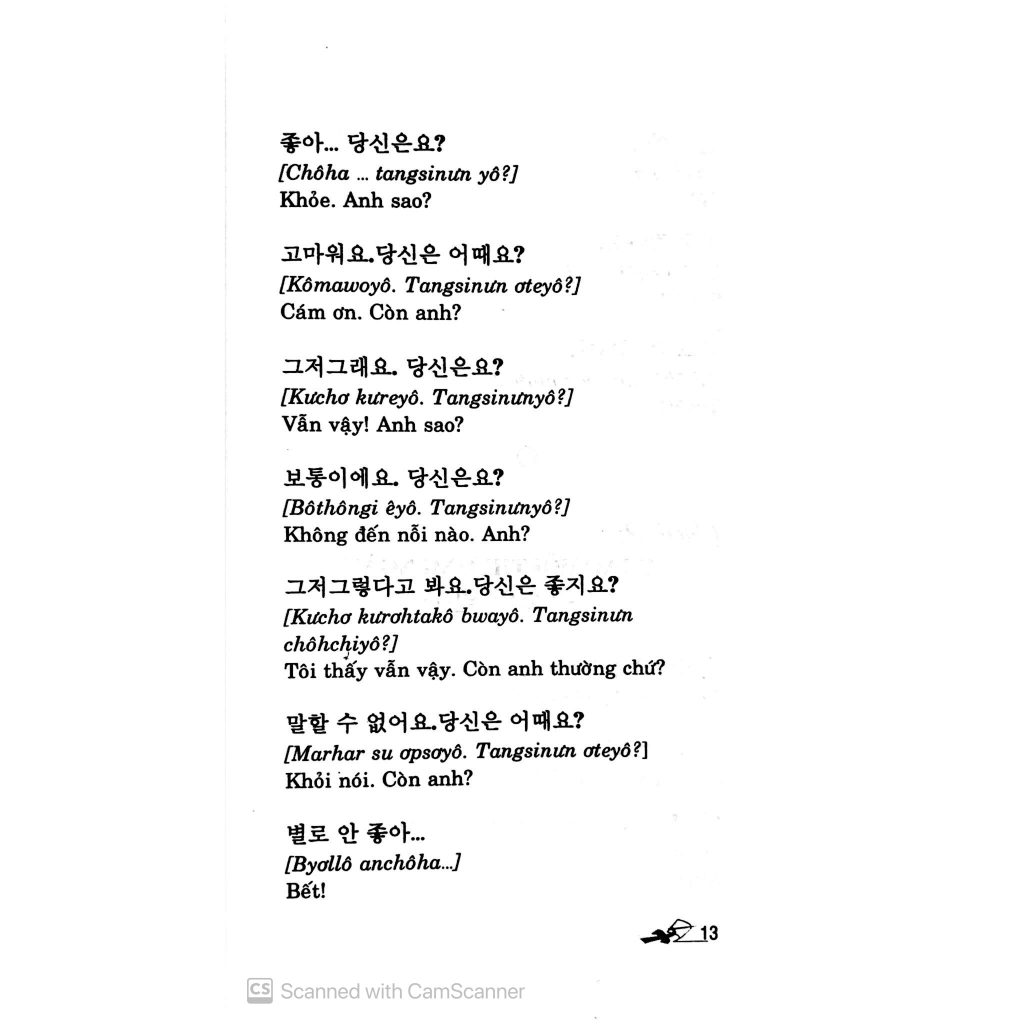 좋아... 당신은요?
[Chôha ... tangsinưn yô?]
Khỏe. Anh sao?
고마워요.당신은 어때요?
[Kômawoyô. Tangsinưn ơteyô?]
Cám ơn. Còn anh?
그저그래요. 당신은요?
[Kưchơ kưreyô. Tangsinưnyô?]
Vẫn vậy! Anh sao?
보통이에요. 당신은요?
[Bôthôngi êyô. Tangsinưnyô?]
Không đến nỗi nào. Anh?
그저그렇다고 봐요.당신은 좋지요?
[Kưchơ kưrơhtakô bwayô. Tangsinưn
chôhchiyô?]
Tôi thấy vẫn vậy. Còn anh thường chứ?
말할 수 없어요.당신은 어때요?
[Marhar su ơpsơyô. Tangsinưn ơteyô?]
Khỏi nói. Còn anh?
별로 안 좋아...
[Byơllô anchôha...]
Bết!
13
CS Scanned with CamScanner